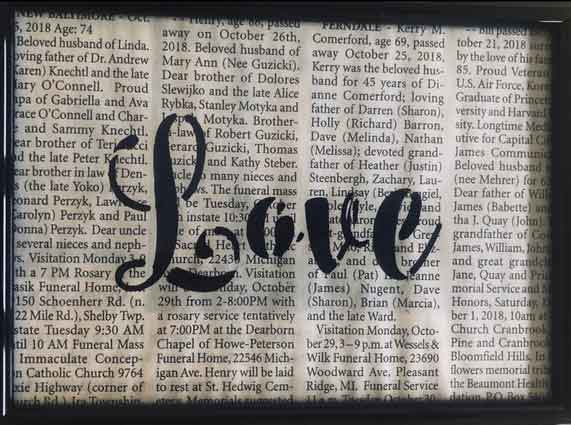 NEW BALTIMORE - Oct.
5, 2018 Age: 74
Beloved husband of Linda.
oving father of Dr. Andrew
Karen) Knechtl and the late
Mary O'Connell. Proud
apa of Gabriella and Ava
race O'Connell and Char-
e and Sammy Knechtl.
ear brother of
d the late Peter Knechtl.
ear brother in law Den-
s (the late Yoko) Perzyk,
eonard Perzyk,
Carolyn) Perzyk and Paul
Donna) Perzyk. Dear uncle
several nieces and neph-
ws. Visitation Monday
th a 7 PM Rosary
asik Funeral Home
150 Schoenherr Rd. (n.
22 Mile Rd.), Shelby Twp.
state Tuesday 9:30 AM
til 10 AM Funeral Mass
Immaculate Concep-
on Catholic Church 9764
xie Highway (corner of
Ira Township
Henry, age 86, passed
away on October 26th,
2018. Beloved husband of
Mary Ann (Nee Guzicki).
Dear brother of Dolores
Slewijko and the late Alice
Rybka, Stanley Motyka and
Motyka. Brother-
-law of Robert Guzicki,
Guzicki, Thomas
uzicki and Kathy Steber.
many nieces and
The funeral mass
be Tuesday,
instate 10:30
Heart
Church 22430 Michigan
Dearborn. Visitation
October
29th from 2-8:00PM with
a rosary service tentatively
at 7:00PM at the Dearborn
Chapel of Howe-Peterson
Funeral Home, 22546 Michi-
gan Ave. Henry will be laid
to rest at St. Hedwig Cem-
etery. Memorials suggested
FERNDALE - Kerry M.
Comerford, age 69, passed
away October 25, 2018.
Kerry was the beloved hus-
band for 45 years of Di-
anne Comerford; loving
father of Darren (Sharon),
Holly (Richard) Barron,
Dave (Melinda), Nathan
(Melissa); devoted grand-
father of Heather (Justin)
Steenbergh, Zachary, Lau-
ren, Lindsay
and
of Paul (Pat) Jeanne
(James) Nugent, Dave
(Sharon), Brian (Marcia),
and the late Ward.
Visitation Monday, Octo-
ber 29, 3–9 p.m. at Wessels &
Wilk Funeral Home, 23690
Woodward Ave, Pleasant
Ridge, MI. Funeral Service
11 a.m. Tuesday October 30
Bill passed
tober 21, 2018
by the love of his fam
85. Proud Veteran
U.S. Air Force, Korea
Graduate of Princet
versity and Harvard
sity. Longtime Med
utive for Capital Ci
James Communi
Beloved husband
(nee Mehrer) for 6
Dear father of Will
James (Babette) and
tha J. Quay (John)
grandfather of Co
James, William, John
and great grandch
Jane, Quay and Pri
morial Service and M
Honors, Saturday,
ber 1, 2018, 10am at
Church Cranbrook
Pine and Cranbrook
Bloomfield Hills. In
flowers memorial trib
the Beaumont Health
dation, P.O. Box
Love